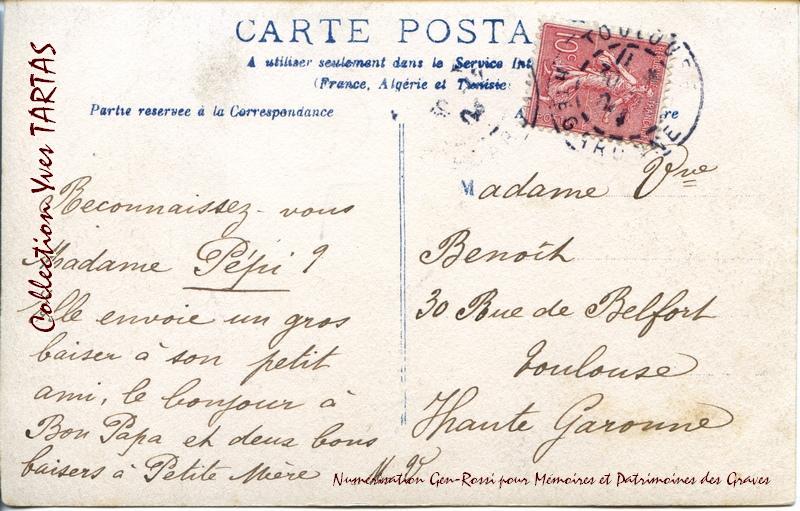 CARTE POSTA
A utiliser seulement dans le Service Int
(France, Algérie et Tunisie
Partie reservée à la Correspondance
Reconnaissez-vous
Madame Pépi ?
Elle envoie un gros
baiser à son petit
ami, le bonjour à
Bon Papa et deux bons
baisers à Petite Mère
Madame Vve
Benoît
30 Rue de Belfort
Toulouse
Haute Garonne
TOULOUSE
10
Collection Yves TARTAS
Numérisation Gen-Rossi pour Mémoires et Patrimoines des Graves